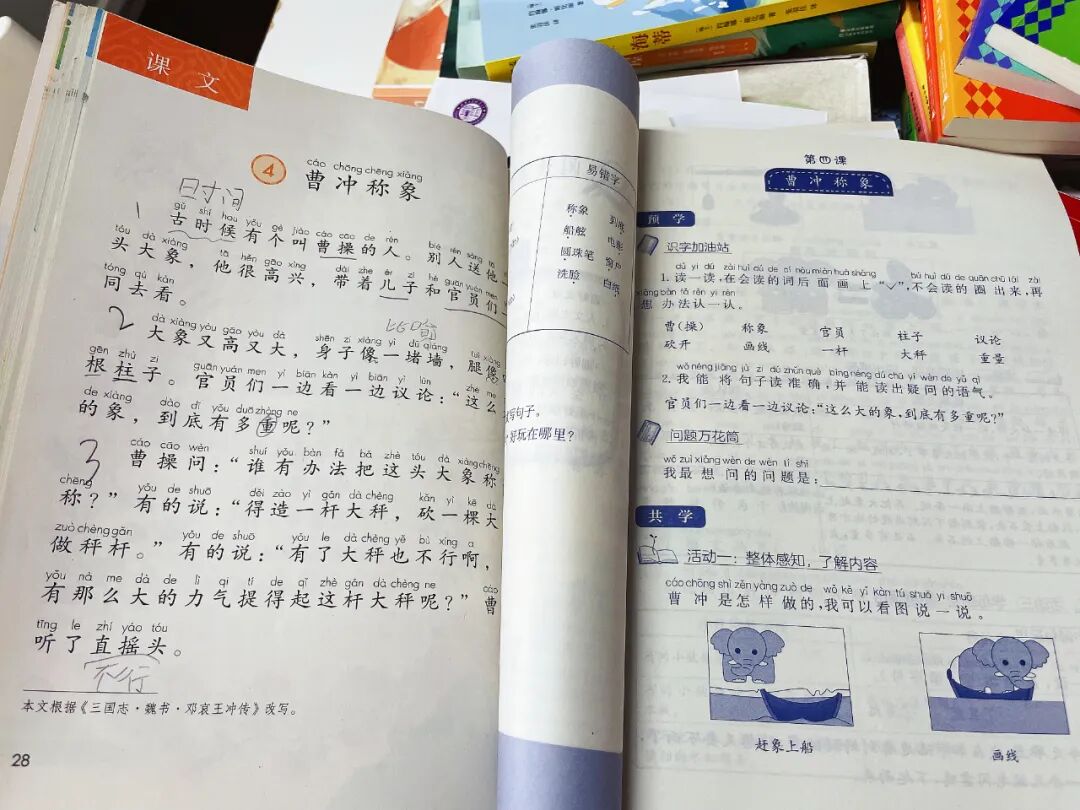 课文
cáo chōng chēng xiàng
4 曹冲称象
时间
1
gǔ shí hou yǒu gè jiào cáo cāo de rén bié rén sòng tā
古时候有个叫曹操的人。别人送他
tóu dà xiàng tā hěn gāo xìng dài zhe ér zi hé guān yuán men
头大象，他很高兴，带着儿子和官员们
tóng qù kàn
同去看。
2
比喻
dà xiàng yòu gāo yòu dà shēn zi xiàng yì dǔ qiáng tuǐ xiàng
大象又高又大，身子像一堵墙，腿像
gēn zhù zi guān yuán men yì biān kàn yì biān yì lùn zhè me
根柱子。官员们一边看一边议论：“这么
de xiàng dào dǐ yǒu duō zhòng ne
的象，到底有多重呢？”
3
cáo cāo wèn shuí yǒu bàn fǎ bǎ zhè tóu dà xiàng chēng
曹操问：“谁有办法把这头大象称
chēng yǒu de shuō děi zào yì gǎn dà chèng kǎn yì kē dà
称？”有的说：“得造一杆大秤，砍一棵大
zuò chèng gǎn yǒu de shuō yǒu le dà chèng yě bù xíng a
做秤杆。”有的说：“有了大秤也不行啊，
yǒu nà me dà de lì qi tí de qǐ zhè gǎn dà chèng ne cáo
有那么大的力气提得起这杆大秤呢？”曹
tīng le zhí yáo tóu
听了直摇头。
不行
本文根据《三国志·魏书·邓哀王冲传》改写。
28
易错字
称象 到底
船舷 电影
圆珠笔 窗户
洗脸 白纸
写句子。
好玩在哪里？
第四课
曹冲称象
预学
识字加油站
dú yi dú zài huì dú de cí hòu miàn huà shàng bú huì dú de quān chū lái zài
1.读一读，在会读的词后面画上“✓”，不会读的圈出来，再
xiǎng bàn fǎ rèn yi rèn
想办法认一认。
曹(操) 称象 官员 柱子 议论
砍开 画线 一杆 大秤 重量
wǒ néng jiāng jù zi dú zhǔn què bìng néng dú chū yí wèn de yǔ qì
2.我能将句子读准确，并能读出疑问的语气。
官员们一边看一边议论：“这么大的象，到底有多重呢？”
问题万花筒
wǒ zuì xiǎng wèn de wèn tí shì
我最想问的问题是：
共学
活动一：整体感知，了解内容
cáo chōng shì zěn yàng zuò de wǒ kě yǐ kàn tú shuō yi shuō
曹冲是怎样做的，我可以看图说一说。
赶象上船 画线